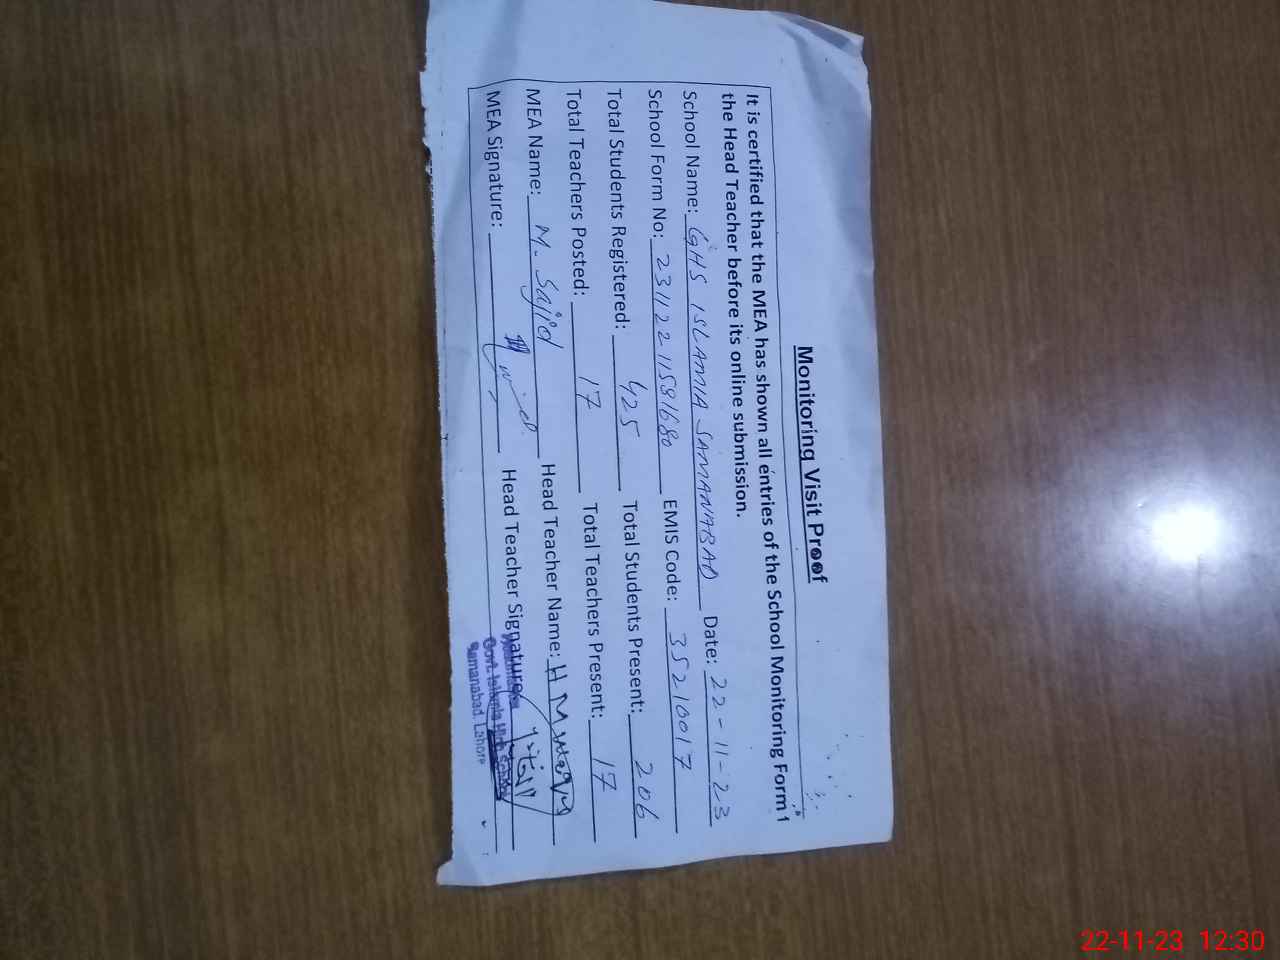 Monitoring Visit Proof
It is certified that the MEA has shown all entries of the School Monitoring Form 1
the Head Teacher before its online submission.
School Name: GHS ISLAMIA SAMANABAD Date: 22-11-23
School Form No: 23112211581680 EMIS Code: 35210017
Total Students Registered: 425 Total Students Present: 206
Total Teachers Posted: 17 Total Teachers Present: 17
MEA Name: M. Sajid Head Teacher Name: H M
MEA Signature: Head Teacher Signature:
Govt. Islamia High School
Samanabad. Lahore
22-11-23 12:30